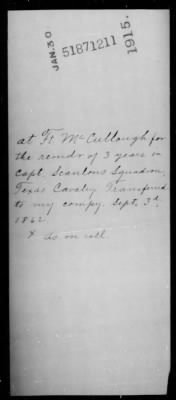 JAN. 30 51871211 1915.
at Ft. McCullough for
the remdr of 3 years in
Capt. Scanlous Squadron,
Texas Cavalry Transferred
to my compy. Sept. 3d,
1862.
x do on roll.